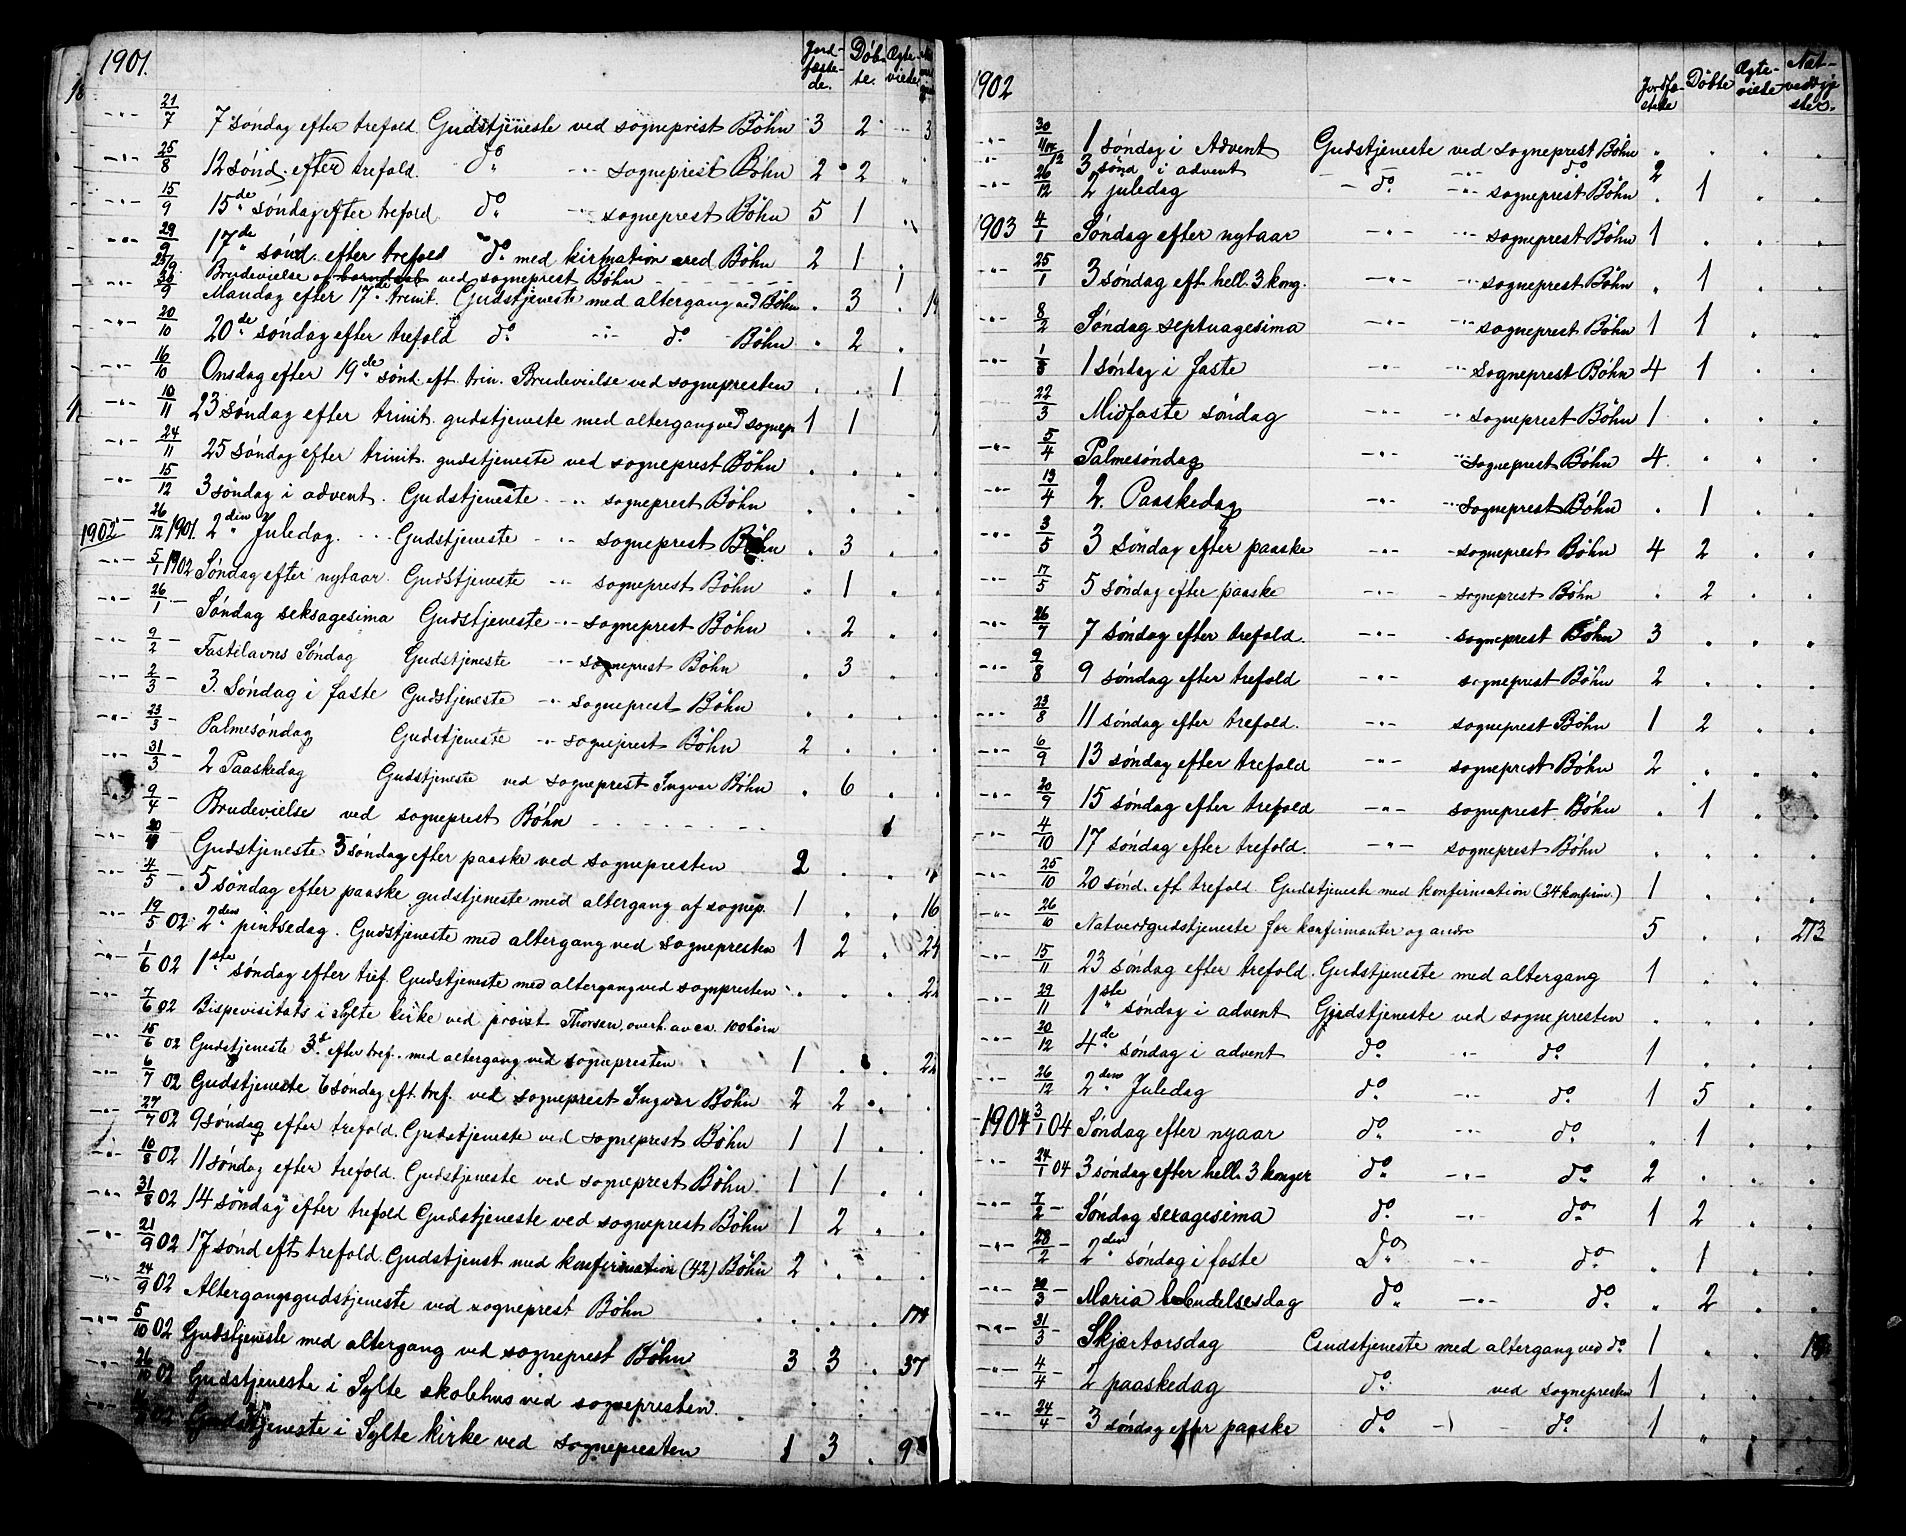 1901.
Jord-fæste-de. Døb-te. Ægte-viede
-"- 21/7 7 søndag efter trefold. Gudstjeneste ved sogneprest Bøhn 3 2 " 3
-"- 25/8 12 sønd. efter trefold. do " -"- sogneprest Bøhn 2 2 "
-"- 15/9 15de søndag efter trefold do " -"- sogneprest Bøhn 5 1 "
-"- 29/9 17de sønd. efter trefold do med kirmation ved Bøhn 2 1 .
Brudevielse og barndaab ved sogneprest Bøhn - - - - 1
30/9 Mandag efter 17de trinit. Gudstjeneste med altergang ved Bøhn . 3 . 19
-"- 20/10 20de søndag efter trefold do " -"- do Bøhn . 2 .
-"- 16/10 Onsdag efter 19de sønd. eft. trin. Brudevielse ved sognepresten . . 1
-"- 10/11 23 søndag efter trinit. gudstjeneste med altergang ved sognepr 1 1
-"- 24/11 25 søndag efter trinit. gudstjeneste ved sogneprest Bøhn . . . .
-"- 15/12 3 søndag i advent. Gudstjeneste -"- sogneprest Bøhn . . . .
1902 26/12 1901. 2den Juledag. - - Gudstjeneste -"- sogneprest Bøhn . 3 . .
-"- 5/1 1902 Søndag efter nytaar. Gudstjeneste -"- sogneprest Bøhn . 1 . .
-"- 26/1 - Søndag seksagesima Gudstjeneste -"- sogneprest Bøhn . 2 . .
-"- 9/2 - Fastelavns Søndag Gudstjeneste -"- sogneprest Bøhn . 3 . .
-"- 2/3 - 3. Søndag i faste Gudstjeneste -"- sogneprest Bøhn . . . .
-"- 23/3 - Palmesøndag Gudstjeneste -"- sogneprest Bøhn 2 . . .
-"- 31/3 - 2 Paaskedag Gudstjeneste ved sogneprest Ingvar Bøhn . 6 . .
9/4 - Brudevielse ved sogneprest Bøhn - - - - - - - 1
-"- 20/4 Gudstjeneste 3 søndag efter paaske ved sognepresten 2 . .
-"- 4/5 - 5 søndag efter paaske gudstjeneste med altergang af sognep. 1 . . 16
-"- 19/5 02 2den pintsedag. Gudstjeneste med altergang ved sognepresten 1 2 . 24
-"- 1/6 02 1ste søndag efter tref. Gudstjeneste med altergang ved sognpresten . . . 22
-"- 7/6 02 Bispevisitats i Sylte kirke ved provst Thorsen, overh. av ca. 100 børn
-"- 15/6 02 Gudstjeneste 3d. efter tref. med altergang ved sognepresten 1 . . 22
-"- 6/7 02 Gudstjeneste 6 søndag eft. tref. ved sogneprest Ingvar Bøhn 2 2 . .
-"- 27/7 02 9 søndag efter trefold. Gudstjeneste ved sogneprest Bøhn 1 1 . .
-"- 10/8 02 11 søndag efter trefold. Gudstjeneste ved sogneprest Bøhn. 1 1 . .
-"- 31/8 02 14 søndag efter trefold Gudstjeneste ved sogneprest Bøhn 1 2 . .
-"- 21/9 02 17 sønd eft trefold. Gudstjenest med konfirmation (42) Bøhn 2 . . .
-"- 24/9 02 Altergangsgudstjeneste ved sogneprest Bøhn . . . 174
-"- 5/10 02 Gudstjeneste med altergang ved sogneprest Bøhn 3 3 . 37
-"- 26/10 02 Gudstjeneste i Sylte skolehus ved sognepresten. . . . .
Gudstjeneste i Sylte kirke ved sognepresten 1 3 . 9
1902
Jordfæ-stede Døbte Ægte-viede Nat-verdgje-ster.
-"- 30/11 1 søndag i Advent Gudstjeneste ved sogneprest Bøhn . . . .
-"- 3 sønd i advent -"- do 2
-"- 26/12 2 juledag - do -"- sogneprest Bøhn . 1 . .
1903 4/1 Søndag efter nytaar -"- -"- sogneprest Bøhn 1 . . .
-"- 25/1 3 søndag eft hell. 3 kong. -"- -"- sogneprest Bøhn . 1 . .
-"- 8/2 Søndag septuagesima -"- -"- sogneprest Bøhn 1 1 . .
-"- 1/3 1 søndag i faste -"- -"- sogneprest Bøhn 4 1 . .
22/3 Midfaste søndag -"- -"- sogneprest Bøhn 1 . . .
-"- 5/4 Palmesøndag -"- sogneprest Bøhn 4. . . .
-"- 13/4 2. Paaskedag -"- sogneprest Bøhn . 1 . .
-"- 3/5 3 søndag efter paaske -"- sogneprest Bøhn 4 2 . .
-"- 17/5 5 søndag efter paaske -"- sogneprest Bøhn . 2 . .
-"- 26/7 7 søndag efter trefold. -"- sogneprest Bøhn 3 . . .
-"- 9/8 9 søndag efter trefold -"- sogneprest Bøhn 2 . . .
-"- 23/8 11 søndag efter trefold. -"- sogneprest Bøhn 1 2 . .
-"- 6/9 13 søndag efter trefold -"- sogneprest Bøhn 2 . . .
-"- 20/9 15 søndag efter trefold -"- sogneprest Bøhn . 1 . .
-"- 4/10 17 søndag efter trefold. -"- sogneprest Bøhn . . . .
-"- 25/10 20 sønd. eft trefold Gudstjeneste med konfirmation (24 konfirm.) 1 . . .
-"- 26/10 Natverdgudstjeneste for konfirmanter og andre 5 . . 273
-"- 15/11 23 søndag efter trefold. Gudstjeneste med altergang 1 . . .
-"- 29/11 1ste søndag i advent Gudstjeneste ved sognepresten . . . .
-"- 20/12 4de søndag i advent do -"- do 1 . . .
-"- 26/12 2den Juledag do -"- do 1 5 . .
-1904 3/1 04 Søndag efter nyaar do -"- do . 1 . .
-"- 24/1 04 3 søndag efter hell. 3 konger do -"- do 2 . . .
-"- 7/2 - Søndag sexagesima do -"- do 1 2 . .
-"- 28/2 - 2den søndag i faste Do -"- do . 1 . .
-"- 20/3 - Maria bebudelsesdag do -"- do . 2 . .
-"- 31/3 - Skjærtorsdag Gudstjeneste med altergang ved do 1 . .
-"- 4/4 - 2 paaskedag do ved sognepresten 1 . . .
-"- 24/4 - 3 søndag efter paaske do - " - do 1 . . .